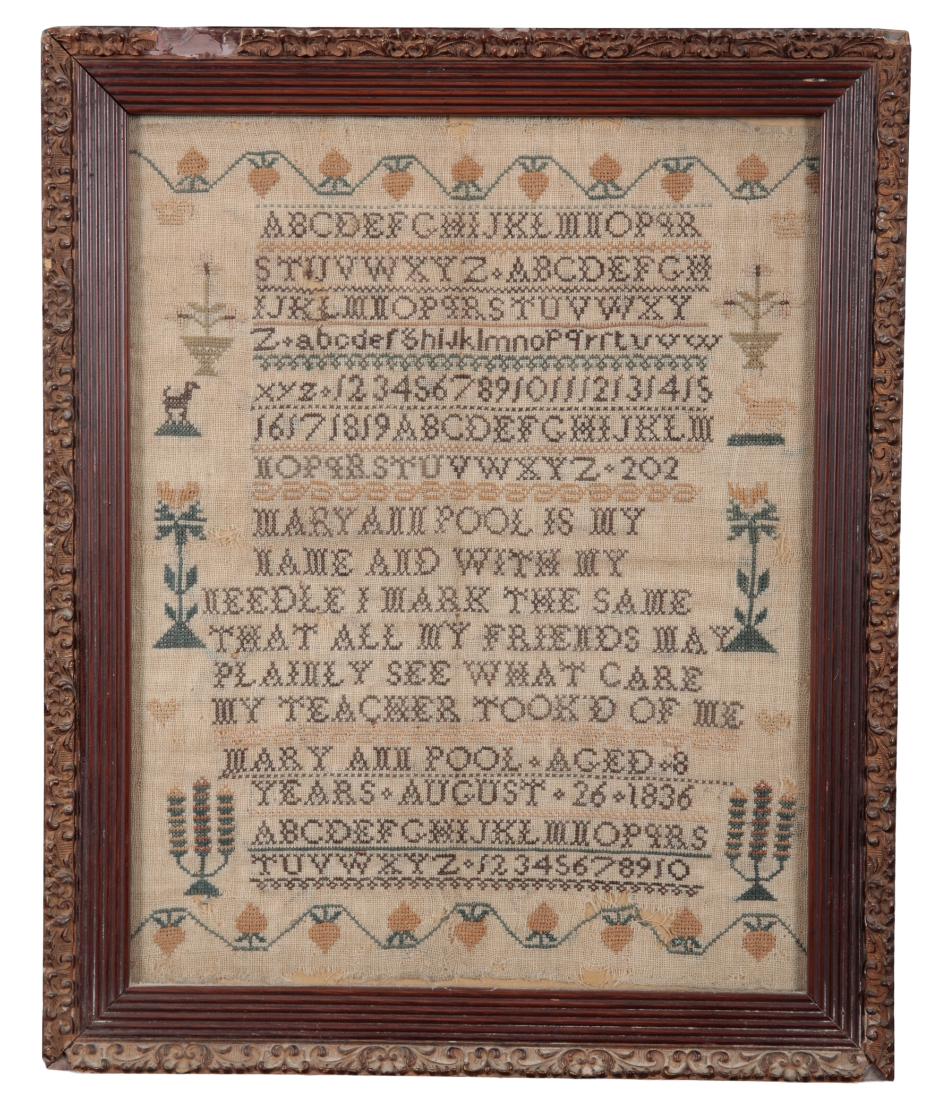 ABCDEFGHIJKLMNOPQR
STUVWXYZ ABCDEFGH
IJKLMNOPQRSTUVWXY
Z abcdefghijklmnopqrſtuvw
xyz 12345678910111213141 5
16171819ABCDEFGHIJKLM
NOPQRSTUVWXYZ 202
MARY ANN POOL IS MY
NAME AND WITH MY
NEEDLE I MARK THE SAME
THAT ALL MY FRIENDS MAY
PLAINLY SEE WHAT CARE
MY TEACHER TOOK'D OF ME
MARY ANN POOL AGED 8
YEARS AUGUST 26 1836
ABCDEFGHIJKLMNOPQRS
TUVWXYZ 12345678910